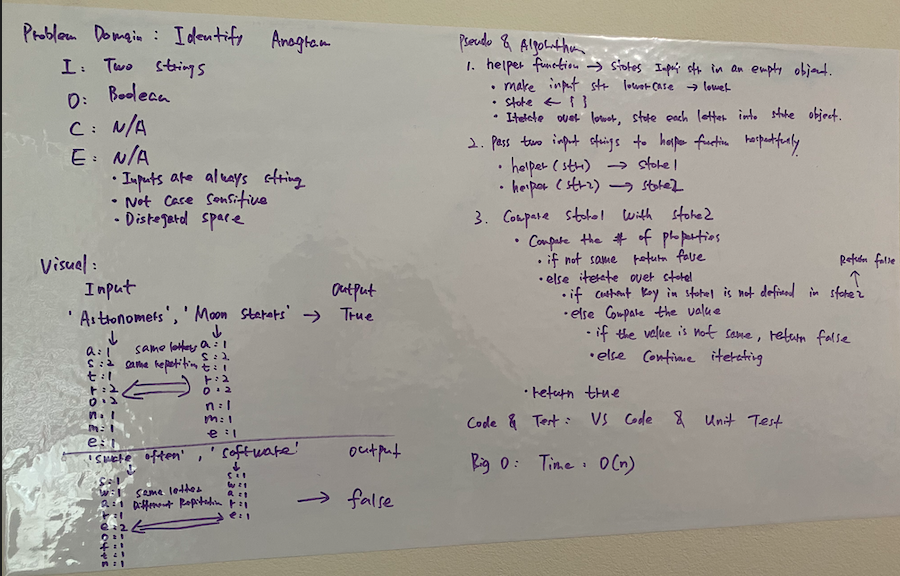 Problem Domain : Identify Anagram
I : Two strings
O : Boolean
C : N/A
E : N/A
• Inputs are always string
• Not case sensitive
• Disregard space
Visual :
Input output
'Astronomers', 'Moon starers' → True
a : 1 same letters a : 1
s : 2 same repetition s : 2
t : 1 t : 1
r : 2 r : 2
o : 2 o : 2
n : 1 n : 1
m : 1 m : 1
e : 1 e : 1
often', 'software' output
s : 1 s : 1
w : 1 same letter w : 1
a : 1 Different a : 1
r : 1 r : 1
e : 2 e : 1
o : 1
f : 1
t : 1
n : 1
→ false
Pseudo & Algorithm
1. helper function → stores Input str in an empty object.
• make input str lowercase → lower
• store ← { }
• Iterate over lower, store each letter into store object.
2. Pass two input strings to helper function
• helper (str1) → store1
• helper (str2) → store2
3. Compare store1 with store2
• Compare the # of properties
• if not same return false
• else iterate over store1
Return false
↑
• if current key in store1 is not defined in store2
• else Compare the value
• if the value is not same, return false
• else continue iterating
• return true
Code & Test : VS Code & Unit Test
Big O : Time : O(n)